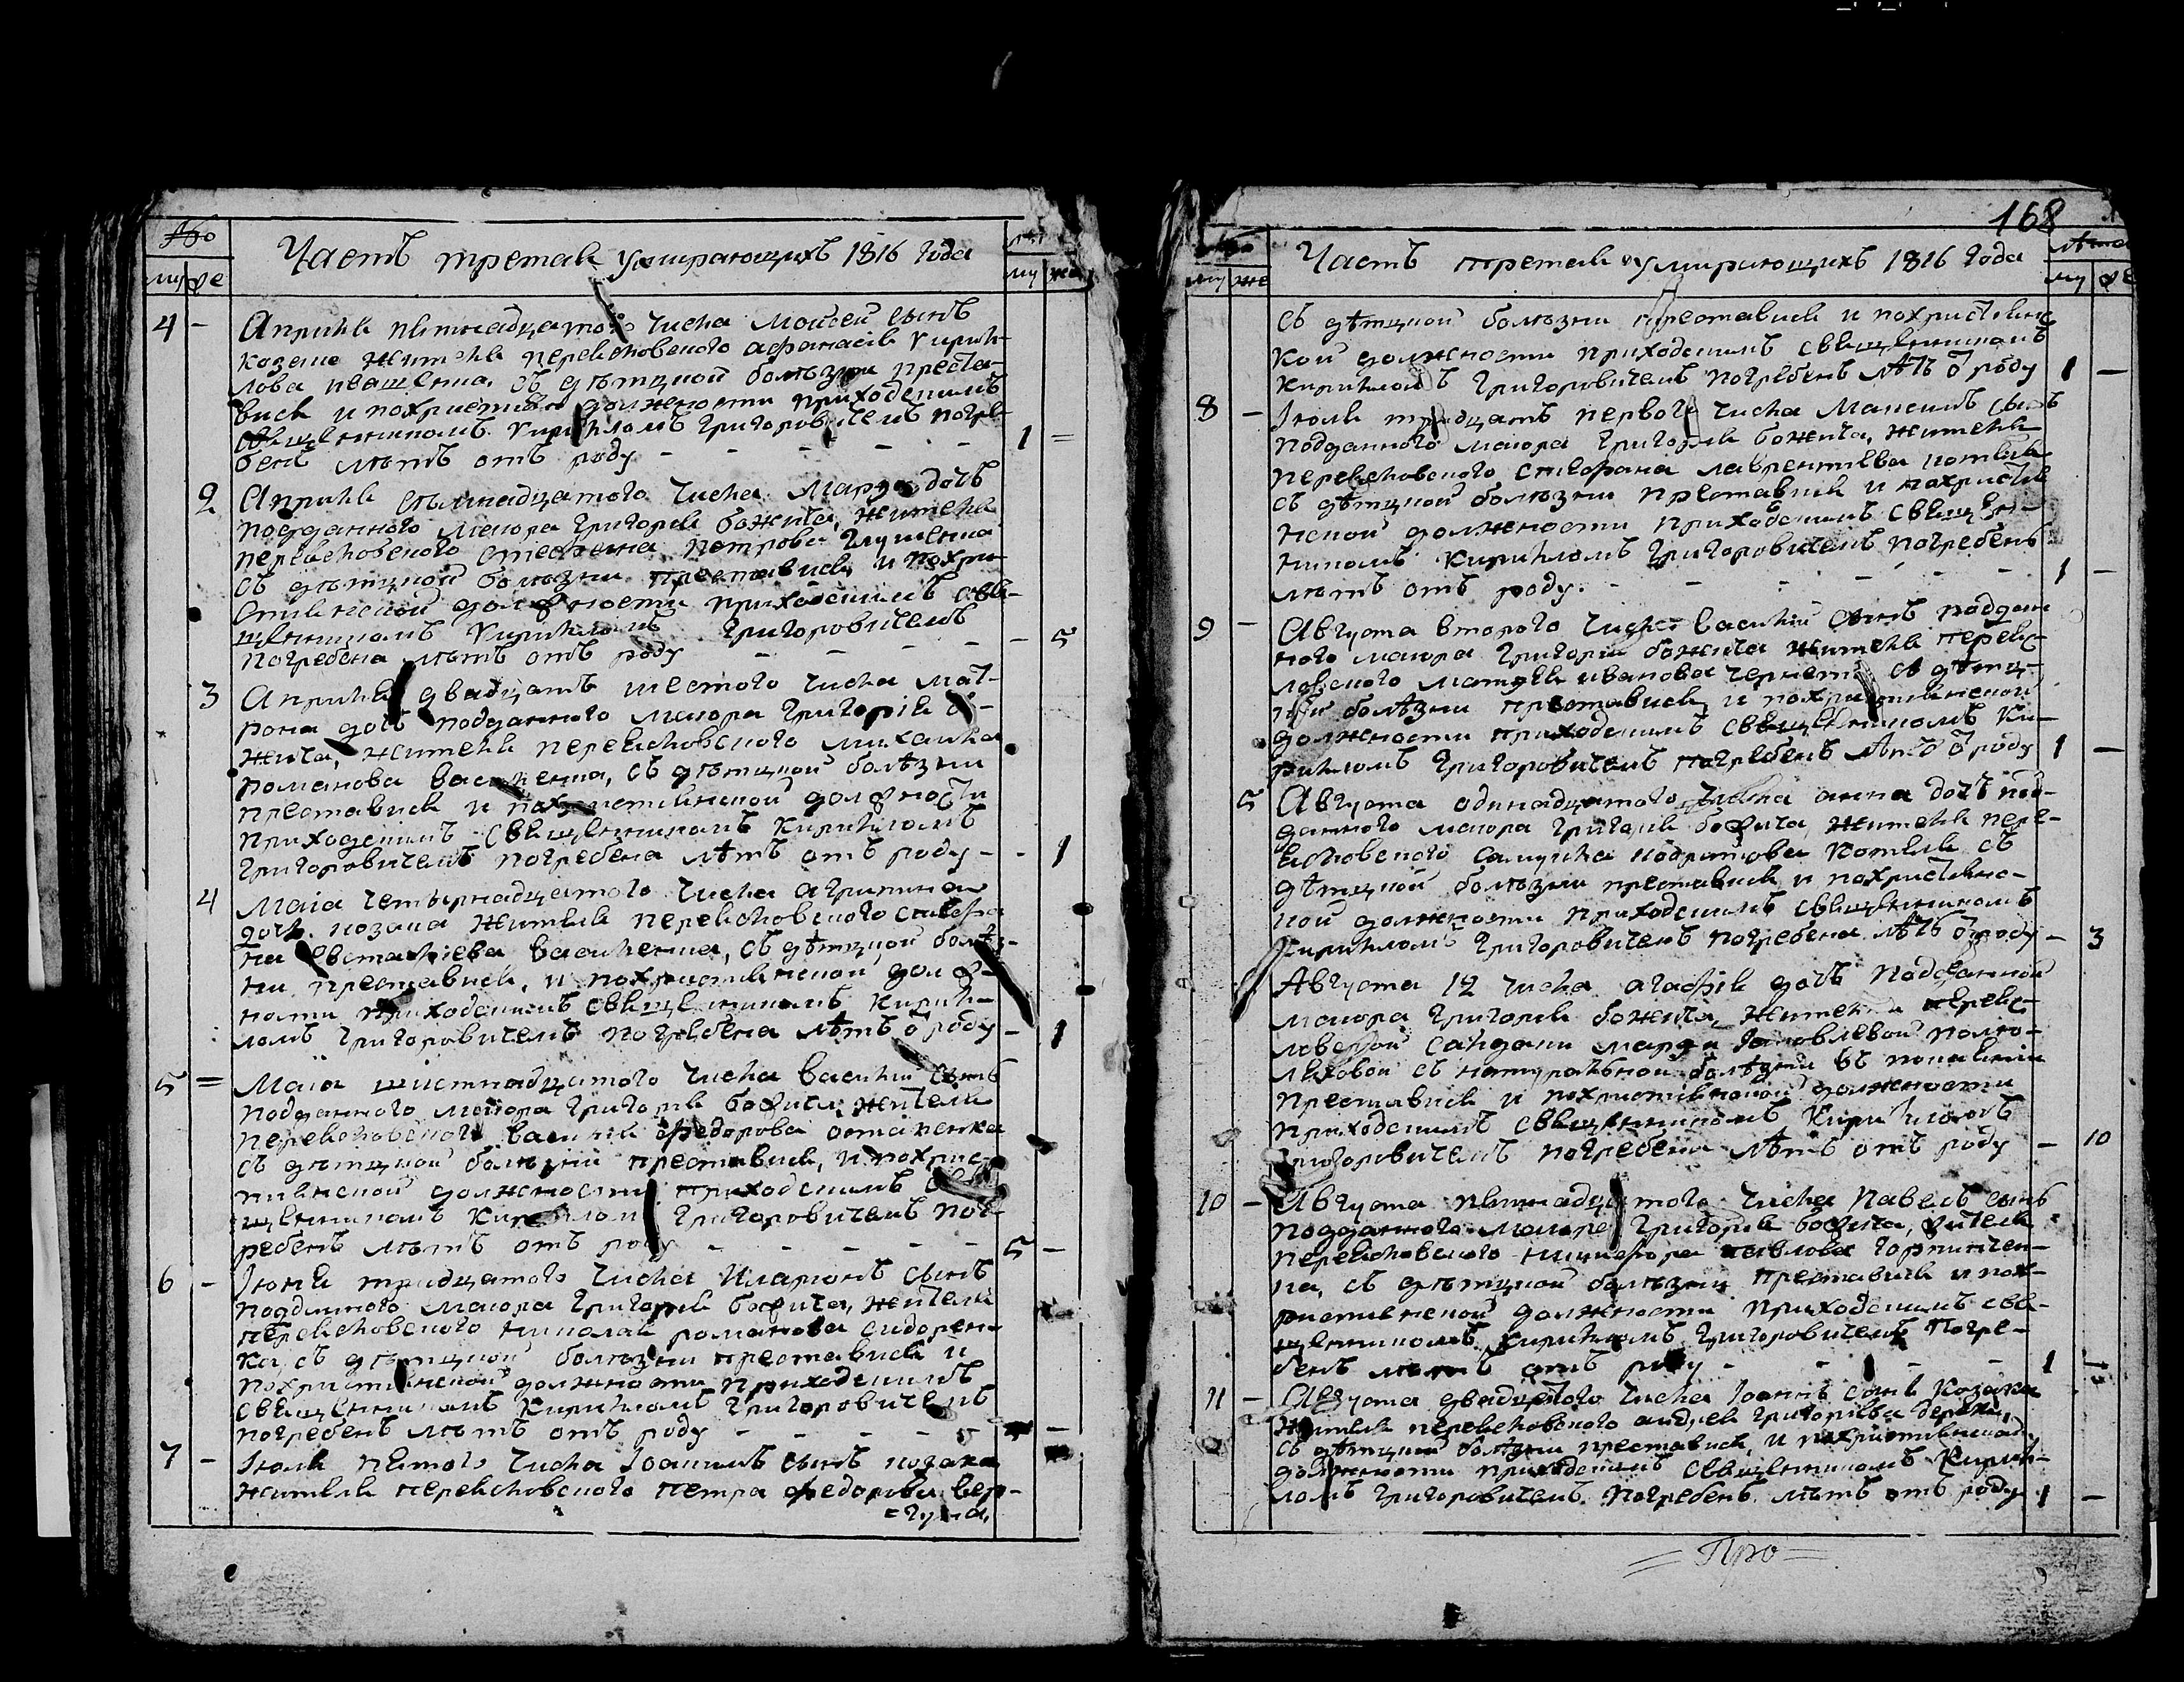 №
му же
Часть третая Умирающихъ 1816 года
му же
4 - Априля пятнадцатого числа Моисей сынъ
козака жителя перевсковского афанасія Кирил-
лова ивашенка, съ дѣтцкой болѣзни преста-
вися и похристианской должности приходскимъ
священникомъ Кириломъ Григоровичемъ погре-
бенъ лѣтъ отъ роду - - - - - 1 =
2 Априля семнадцатого числа Марфа дочь
подданного маиора Григорія божича, жителя
перевсковского стефана петрова глущенка
съ дѣтцкой болѣзни преставися, и похри-
стианской должности приходскимъ свя-
щенникомъ Кириломъ Григоровичемъ
погребена лѣтъ отъ роду - - - - - 5
3 Априля двадцать шестого числа мат-
рона дочь подданного маиора Григорія бо-
жича, жителя перевсковского михаила
романова василенка, съ дѣтцкой болѣзни
преставися и похристианской должности
приходскимъ священникомъ Кириломъ
Григоровичемъ погребена лѣтъ отъ роду - - 1
4 Маіа четырнадцатого числа агрипина
дочь козака жителя перевсковского стефа-
на Евстафіева василенка, съ дѣтцкой болѣз-
ни преставися, и похристианской долж-
ности приходскимъ священникомъ Кири-
ломъ Григоровичемъ погребена лѣтъ ѿ роду - 1
5 = Маіа шистнадцатого числа василій сынъ
подданного маиора Григорія божича жителя
перевсковского василія федорова остапенка
съ дѣтцкой болѣзни преставися, и похрис-
тианской должности приходскимъ свя-
щенникомъ Кириломъ Григоровичемъ пог-
ребенъ лѣтъ отъ роду - - - - - 5 -
6 - Іюня тридцатого числа Иларіонъ сынъ
подданного маиора Григорія божича, жителя
перевсковского николая романова сидорен-
ка, съ дѣтцкой болѣзни преставися и
похристианской должности приходскимъ
священникомъ Кириломъ Григоровичемъ
погребенъ лѣтъ отъ роду - - - - -
7 - Іюля пятого числа Іоакимъ сынъ козака
жителя перевсковского петра федорова вер-
=гуна,
168
му же
Часть третая Умирающихъ 1816 года
Лѣта
му же
съ дѣтцкой болѣзни преставися и похристианс
кой должности приходскимъ священникомъ
Кириломъ Григоровичемъ погребенъ лѣтъ ѿ роду 1 -
8 - Іюля тридцать первого числа Максимъ сынъ
подданного маиора Григорія божича, жителя
перевсковского стефана лаврентіева котеля
съ дѣтцкой болѣзни преставися и похристиа
нской должности приходскимъ священ-
никомъ Кириломъ Григоровичемъ погребенъ
лѣтъ отъ роду. - - - - - 1 -
9 - Августа второго числа василій сынъ поддан
ного маиора Григорія божича жителя перевс-
ковского матфея иванова съ дѣтц-
кой болѣзни преставися и похристианской
должности приходскимъ священникомъ Ки-
риломъ Григоровичемъ погребенъ лѣтъ ѿ роду 1 -
5 Августа одинадцатого числа анна дочь под-
данного маиора Григорія божича, жителя пере-
всковского самуила кодратова котеля съ
дѣтцкой болѣзни преставися и похристианс-
кой должности приходскимъ священникомъ
Кириломъ Григоровичемъ погребена лѣтъ ѿ роду - 3
Августа 12 числа агафія дочь подданной
маиора Григорія божича, перевс-
ковской марфи Яковлевой
съ натуральной болѣзни въ покаянии
преставися и похристианской должности
приходскимъ священникомъ Кириломъ
Григоровичемъ погребена лѣтъ отъ роду - 10
10 - Августа пятнадцатого числа Павелъ сынъ
подданного маиора Григорія божича, жителя
перевсковского никифора павлова
ка, съ дѣтцкой болѣзни преставися и пох-
ристианской должности приходскимъ свя-
щенникомъ Кириломъ Григоровичемъ погре-
бенъ лѣтъ отъ роду - - - - 1 -
11 - Августа двадцатого числа Іоаннъ сынъ козака
жителя перевсковского андрея григоріева
съ дѣтцкой болѣзни преставися, и похристианской
должности приходскимъ священникомъ Кири-
ломъ Григоровичемъ погребенъ лѣтъ отъ роду 1 -
= Про =